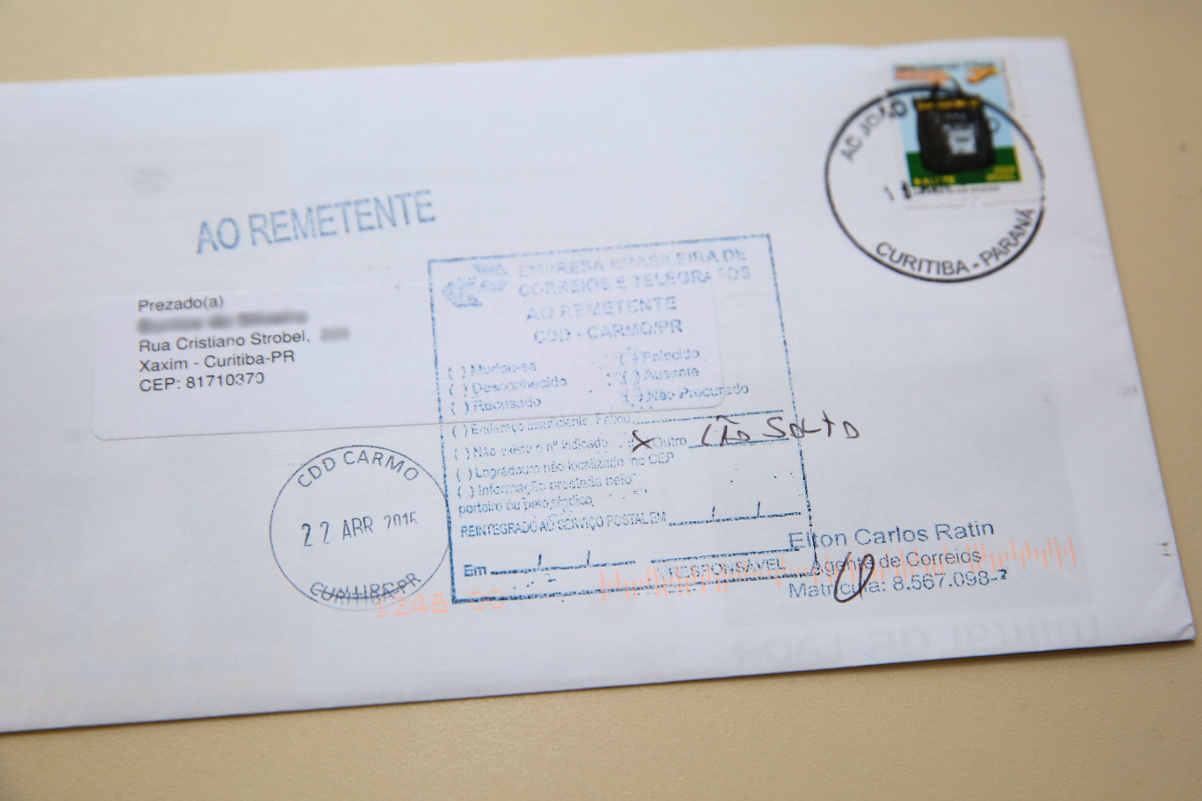 AC JOÃO
CURITIBA - PARANÁ
AO REMETENTE
Prezado(a)
Rua Cristiano Strobel,
Xaxim - Curitiba-PR
CEP: 81710370
EMPRESA BRASILEIRA DE
CORREIOS E TELÉGRAFOS
AO REMETENTE
CDD - CARMO/PR
( ) Mudou-se ( ) Falecido
( ) Desconhecido ( ) Ausente
( ) Recusado ( ) Não Procurado
( ) Endereço insuficiente. Faltou
( ) Não existe o nº indicado X Outro CÃO SOLTO
( ) Logradouro não localizado no CEP
( ) Informação prestada pelo
porteiro ou pelo síndico
REINTEGRADO AO SERVIÇO POSTAL EM / /
Em / / RESPONSÁVEL
CDD CARMO
22 ABR 2015
CURITIBA-PR
Elton Carlos Ratin
Agente de Correios
Matrícula: 8.567.098-7